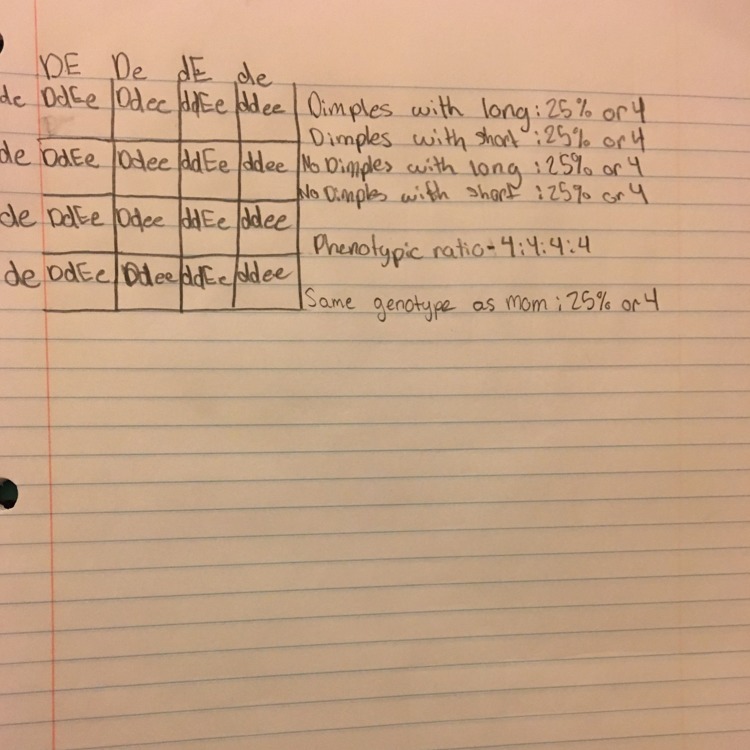 DE De dE de
de DdEe Ddee ddEe ddee
de DdEe Ddee ddEe ddee
de DdEe Ddee ddEe ddee
de DdEe Ddee ddEe ddee
Dimples with long: 25% or 4
Dimples with short: 25% or 4
No Dimples with long: 25% or 4
No Dimples with short: 25% or 4
Phenotypic ratio- 4:4:4:4
Same genotype as mom: 25% or 4